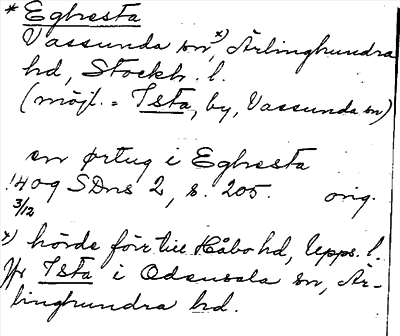 * Eghresta
Vassunda sn, x) Ärlinghundra
hd, Stockh. l.
(möjl. = Ista, by, Vassunda sn)
en ørtug i Eghresta
1409 SDns 2, s. 205. orig.
3/12
x) hörde förr till Håbo hd, Upps. l.
Jfr Ista i Odensala sn, Är-
linghundra hd.